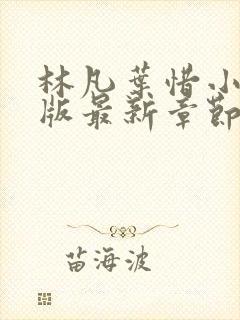 林凡葉惜小
版最新章節
苗海波